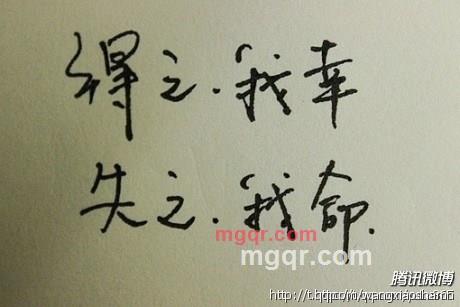 得之.我幸
失之.我命.
mgqr.com
mgqr.com
腾讯微博